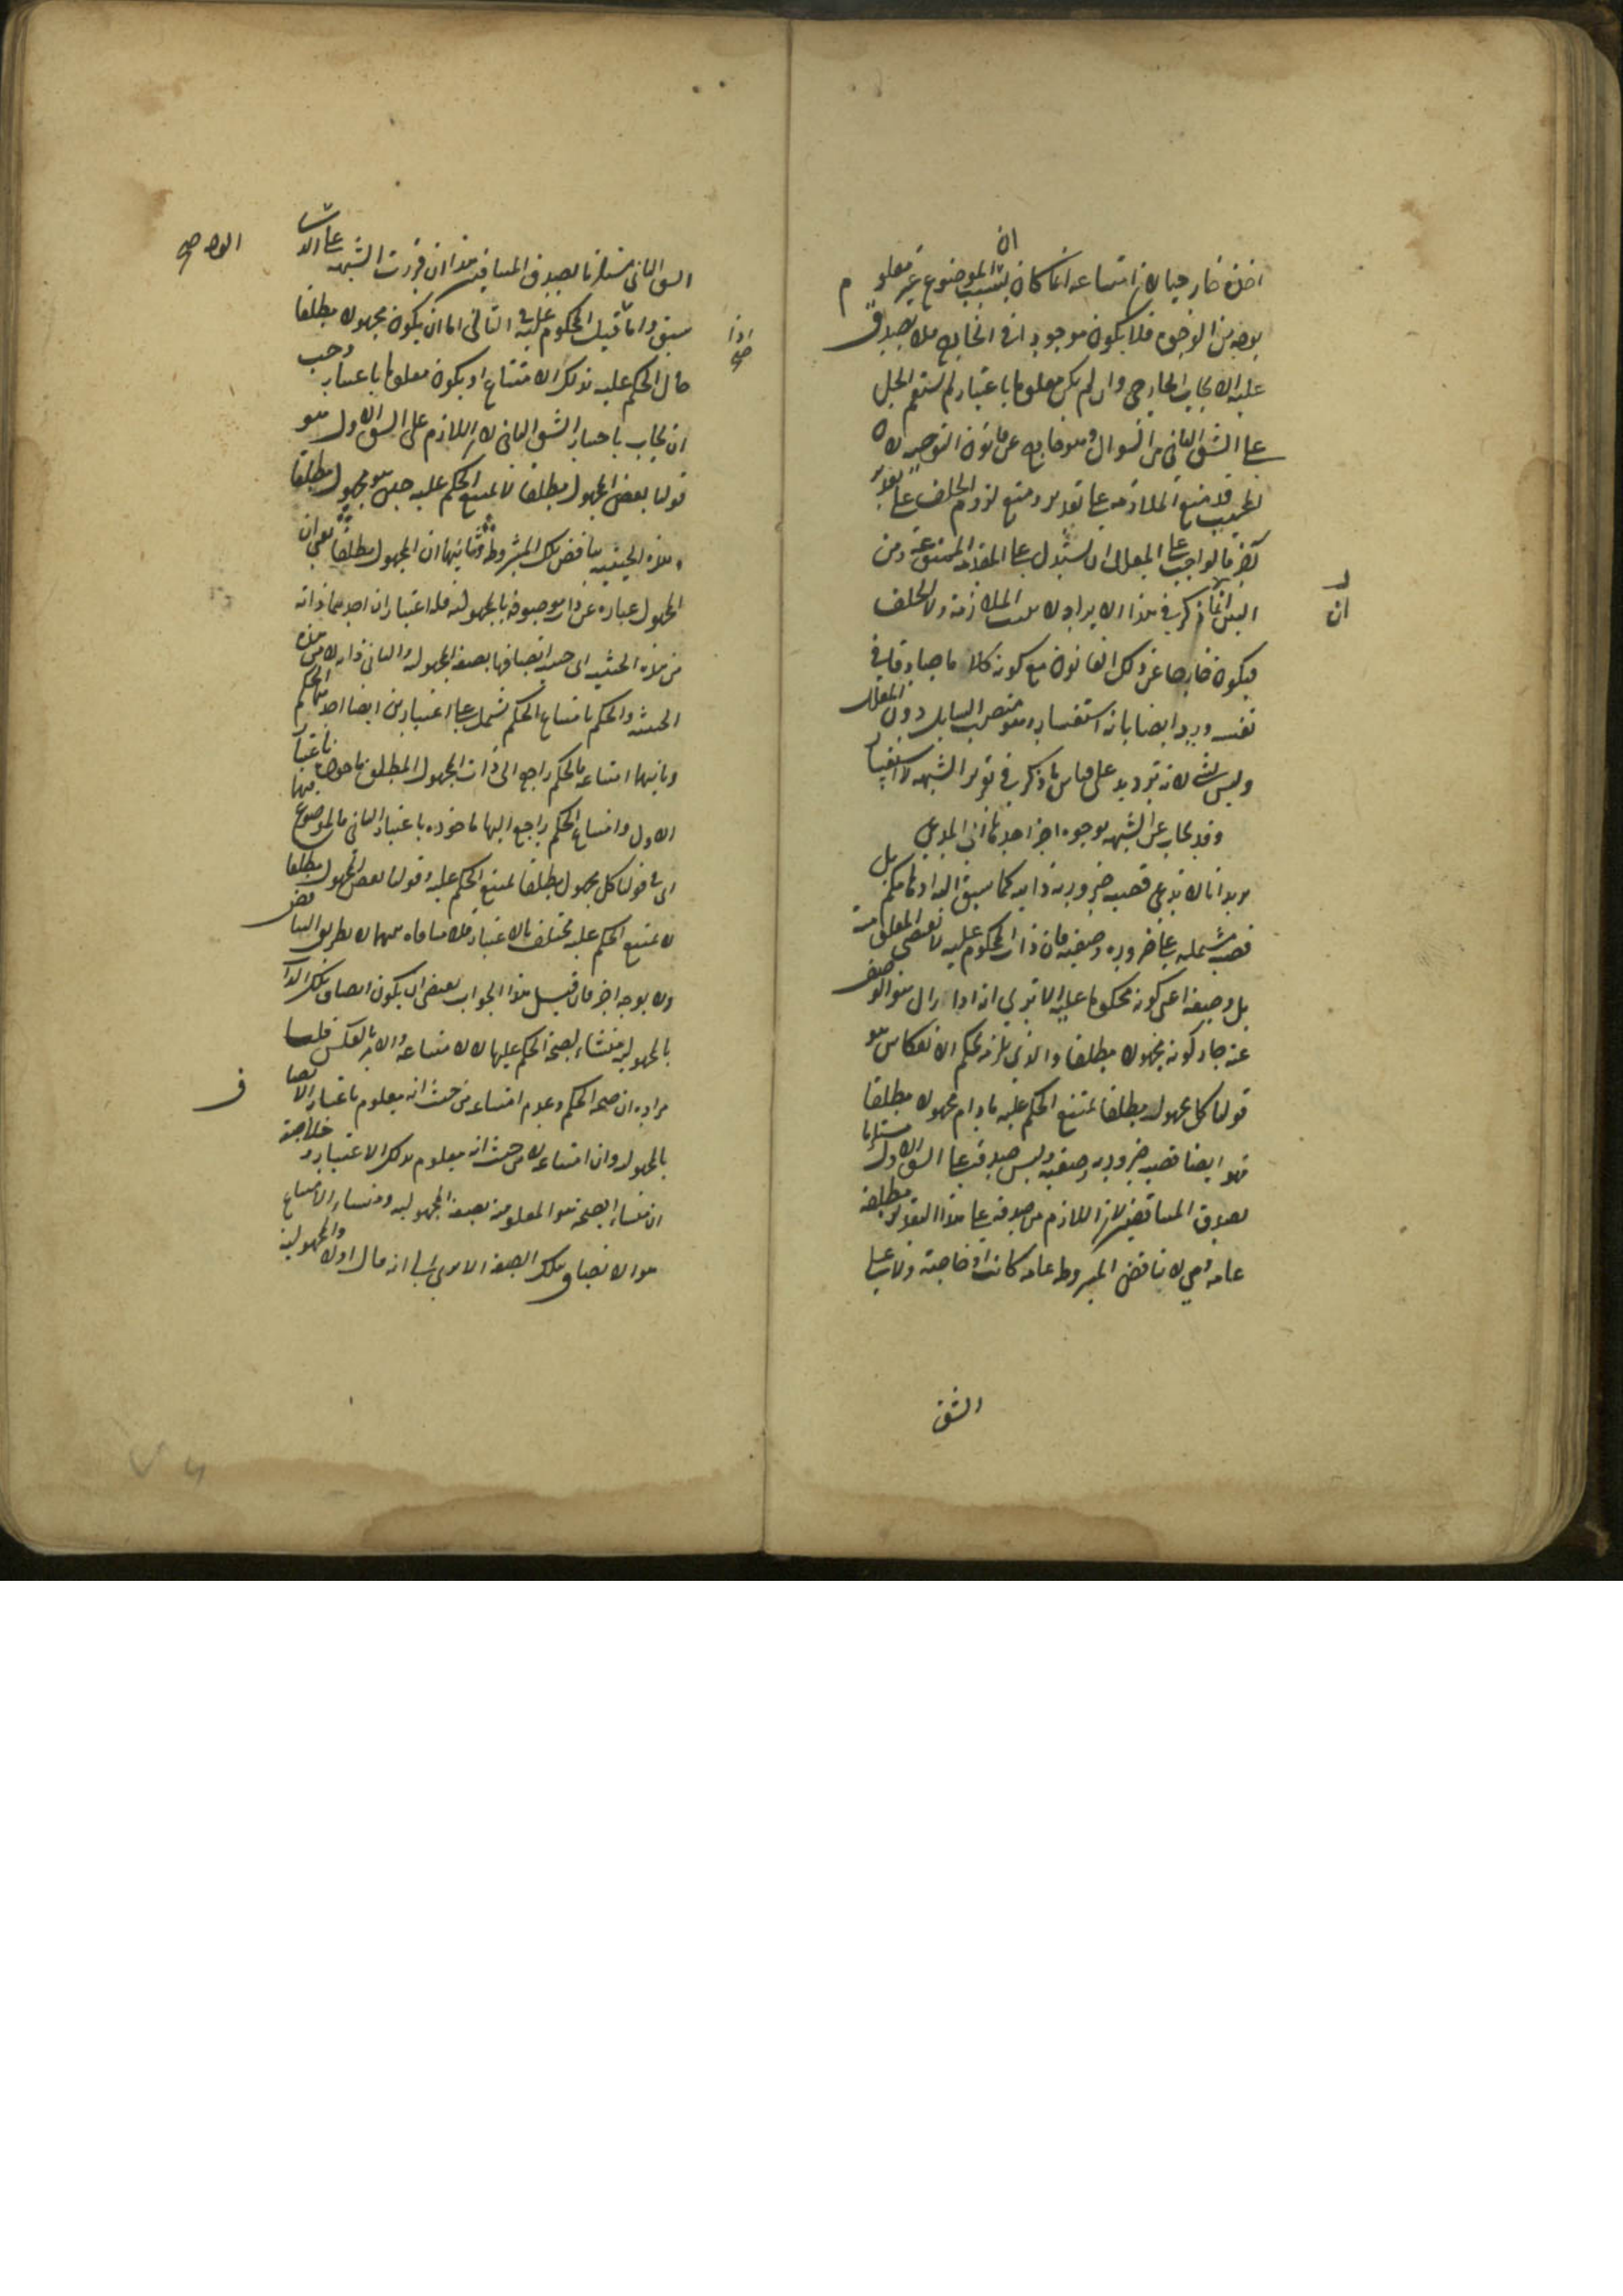 اخذه خارجيا لان امتناعه انما كان بسبب ان الموضوع غير معلوم
بوجه من الوجوه فلا يكون موجودا في الخارج فلا يصدق
عليه الايجاب الخارجي وان لم يكن معلوما باعتبار لم يستقم الحمل
على الشق الثاني من السوال وهو خارج عن قانون التوجيه لان
المجيب قد منع الملازمة على تقدير ومنع لزوم الخلف على تقدير
آخر فالواجب على المعلل ان يستدل على المقدمة الممنوعة ومن
البين ان ما ذكر في هذا الايراد لا يثبت الملازمة ولا الخلف
فيكون خارجا عن ذلك القانون مع كونه كلاما صادقا في
نفسه ورد ايضا بانه استفسار وهو منصب السايل دون المعلل
وليس بشي لانه ترديد على قياس ما ذكر في تقرير الشبهة لا استفسار
وقد يجاب عن الشبهة بوجوه اخر احدها ان المدعي
قضية مشتملة على ضرورة وصفية فان ذات المحكوم عليه لا تقتضي المعلومية
بل وصفه اعني كونه محكوما عليه الا ترى انه اذا زال هذا الوصف
عنه جاز كونه مجهولا مطلقا والذي يلزمه بحكم الانعكاس هو
قولنا كل مجهول مطلقا يمتنع الحكم عليه ما دام مجهولا مطلقا
فهو ايضا قضية ضرورية وصفية وليس صدقه على الشق الاول مستلزما
لصدق المتناقضين لان اللازم من صدقه على هذا التقدير مطلقة
عامة وهي لا تناقض المشروطة عامة كانت او خاصة ولا على
الشق
الشق الثاني مستلزما لصدق المتنافيين هذا ان قررت الشبهة على الاشا
سبق واما اذا قيل المحكوم عليه في الثاني اما ان يكون مجهولا مطلقا
حال الحكم عليه بذلك الامتناع او يكون معلوما باعتبار وجب
ان يجاب باختيار الشق الثاني لان اللازم على الشق الاول هو
قولنا بعض المجهول مطلقا لا يمتنع الحكم عليه حين هو مجهول مطلقا
وهذه الحينية تناقض تلك المشروطة وثانيها ان المجهول مطلقا يعني ان
المجهول عبارة عن ذات موصوفة بالمجهولية فله اعتباران احدهما ذاته
من هذه الحيثية اي حيث اتصافها بصفة المجهولية والثاني ذاته لا من هذه
الحيثية والحكم بامتناع الحكم يشتمل على اعتبارين ايضا احدهما الحكم
وثانيهما امتناعه فالحكم راجع الى ذات المجهول المطلق ماخوذا باعتبار
الاول وامتناع الحكم راجع اليها ماخوذه باعتبار الثاني فالموضوع
في قولنا كل مجهول مطلقا يمتنع الحكم عليه وقولنا بعض المجهول مطلقا
لا يمتنع الحكم عليه مختلف بالاعتبار فلا منافاة بينهما لا بطريق التناقض
ولا بوجه اخر فان قيل هذا الجواب يقتضي ان يكون اتصاف تلك الذات
بالمجهولية منشاء لصحة الحكم عليها لا لامتناعه والامر بالعكس قلنا
مراده ان صحة الحكم وعدم امتناعه من حيث انه معلوم باعتبار الاتصاف
بالمجهولية وان امتناعه لا من حيث انه معلوم بذلك الاعتبار وخلاصته
ان منشاء الصحة هو المعلومية بصفة المجهولية ومنشاء الامتناع
هو الاتصاف بتلك الصفة الا ترى الى انه قال اولا والمجهولية